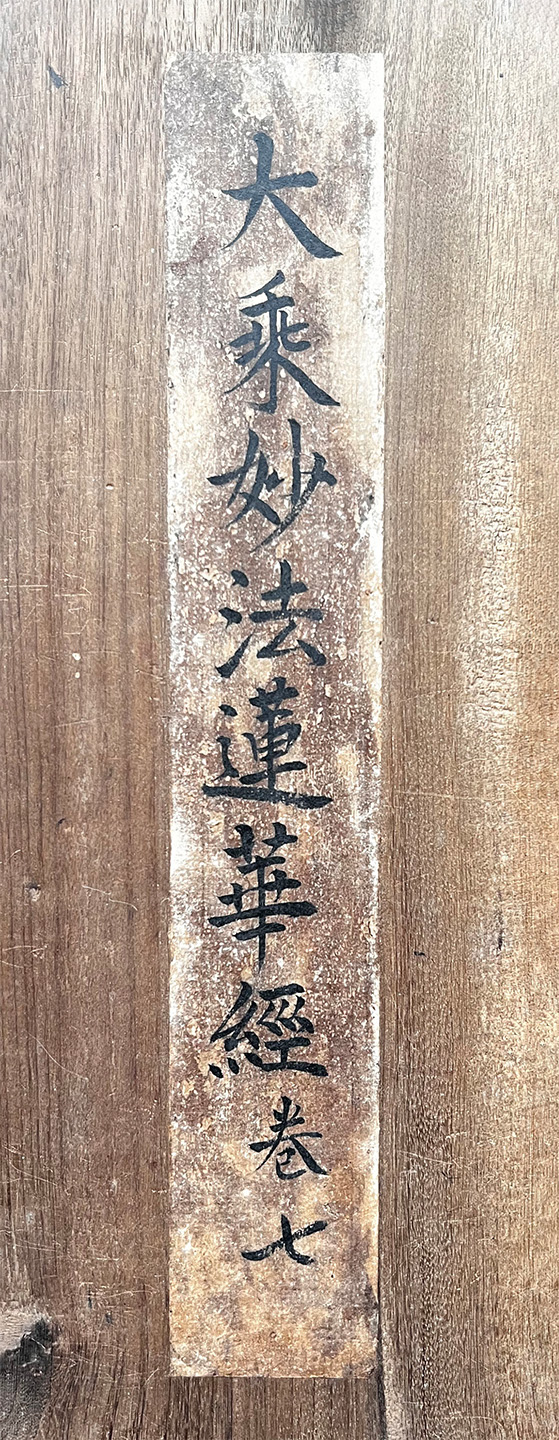 大乘妙法蓮華經卷七